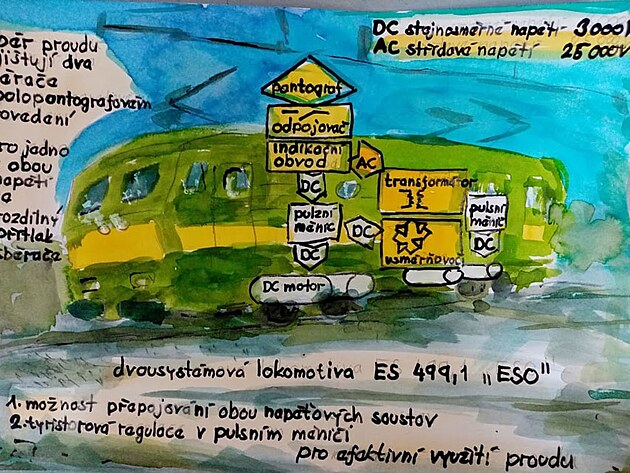 DC stejnosměrné napětí 3000V
AC střídavé napětí 25000V
běr proudu
jišťují dva
ěrače
polopantografovém
ovedení
ro jedno
obou
napětí
a
rozdílný
přítlak
sběrače
pantograf
odpojovač
indikační
obvod
AC
DC
transformátor
pulzní
měnič
DC
pulsní
měnič
DC
usměrňovač
DC
DC motor
dvousystémová lokomotiva ES 499,1 „ESO"
1. možnost přepojování obou napěťových soustav
2. tyristorová regulace v pulsním měniči
pro efektivní využití proudu